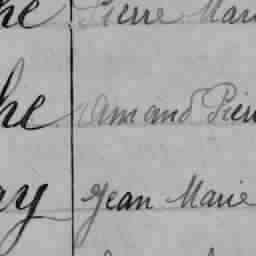 he Pierre Mari
he Amand Pierr
ay Jean Marie